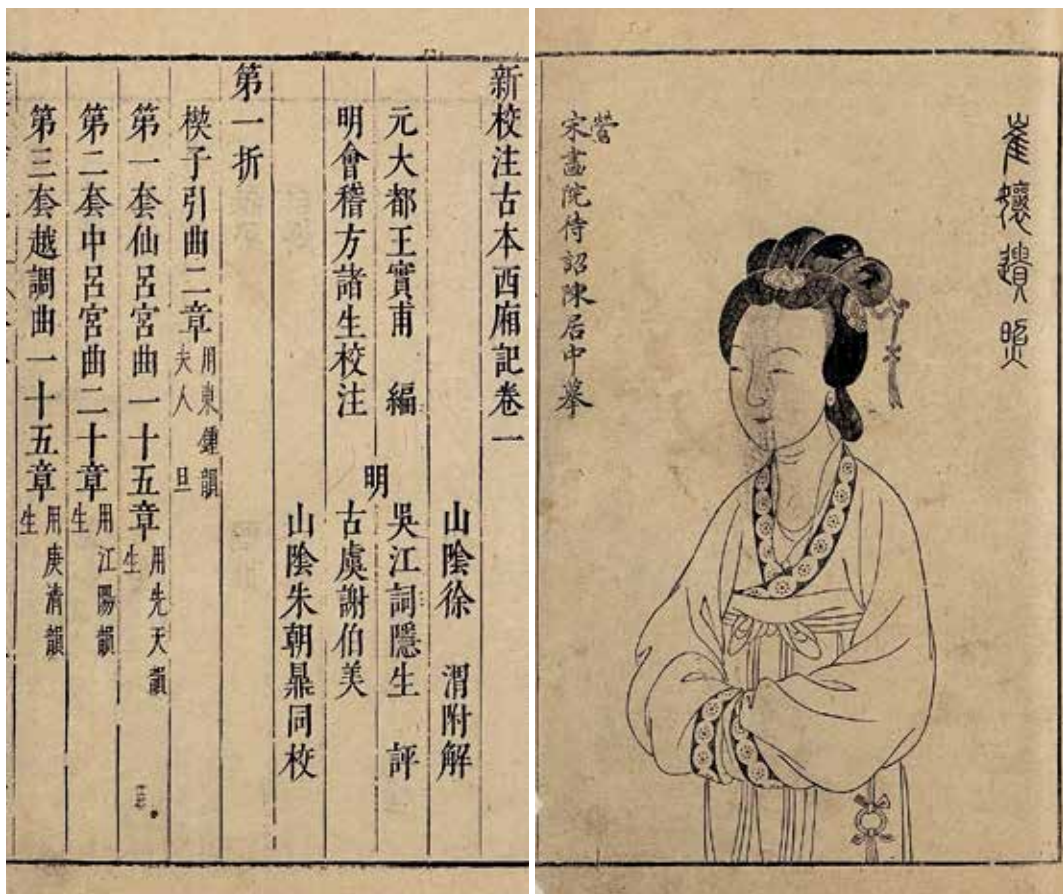 崔孃遺照
營
宋畫院待詔陳居中摹
新校注古本西廂記卷一
山陰徐 渭附解
元大都王實甫 編
吳江詞隱生 評
明
明會稽方諸生校注
古虞謝伯美
山陰朱朝鼎同校
第一折
楔子引曲二章 用東鍾韻 夫人 旦
第一套仙呂宮曲一十五章 用先天韻 生
第二套中呂宮曲二十章 用江陽韻 生
第三套越調曲一十五章 用庚清韻 生